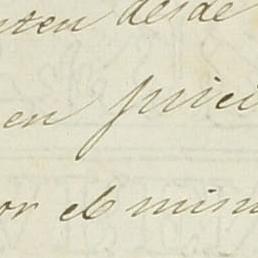 nten desde
en juici
or el mism